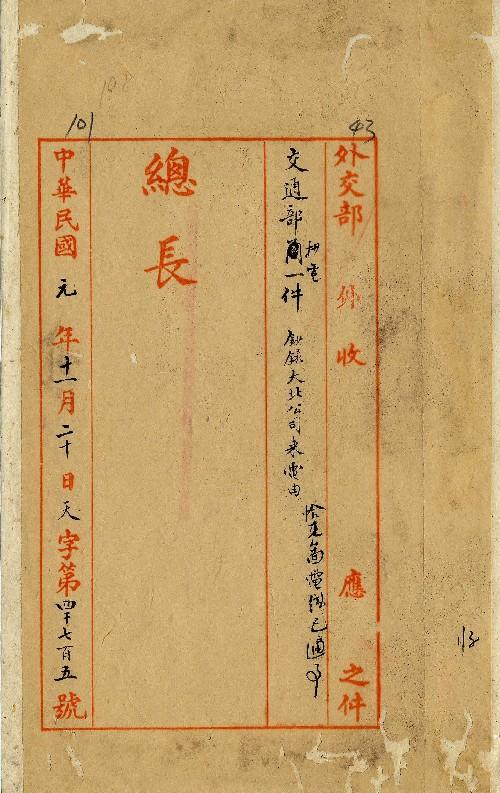 108
101
43
外交部 收 應 之件
交通部 一件 鈔錄大北公司來電由
恰克圖電線已通事
總長
中華民國元年十一月二十日天字第四千七百五號